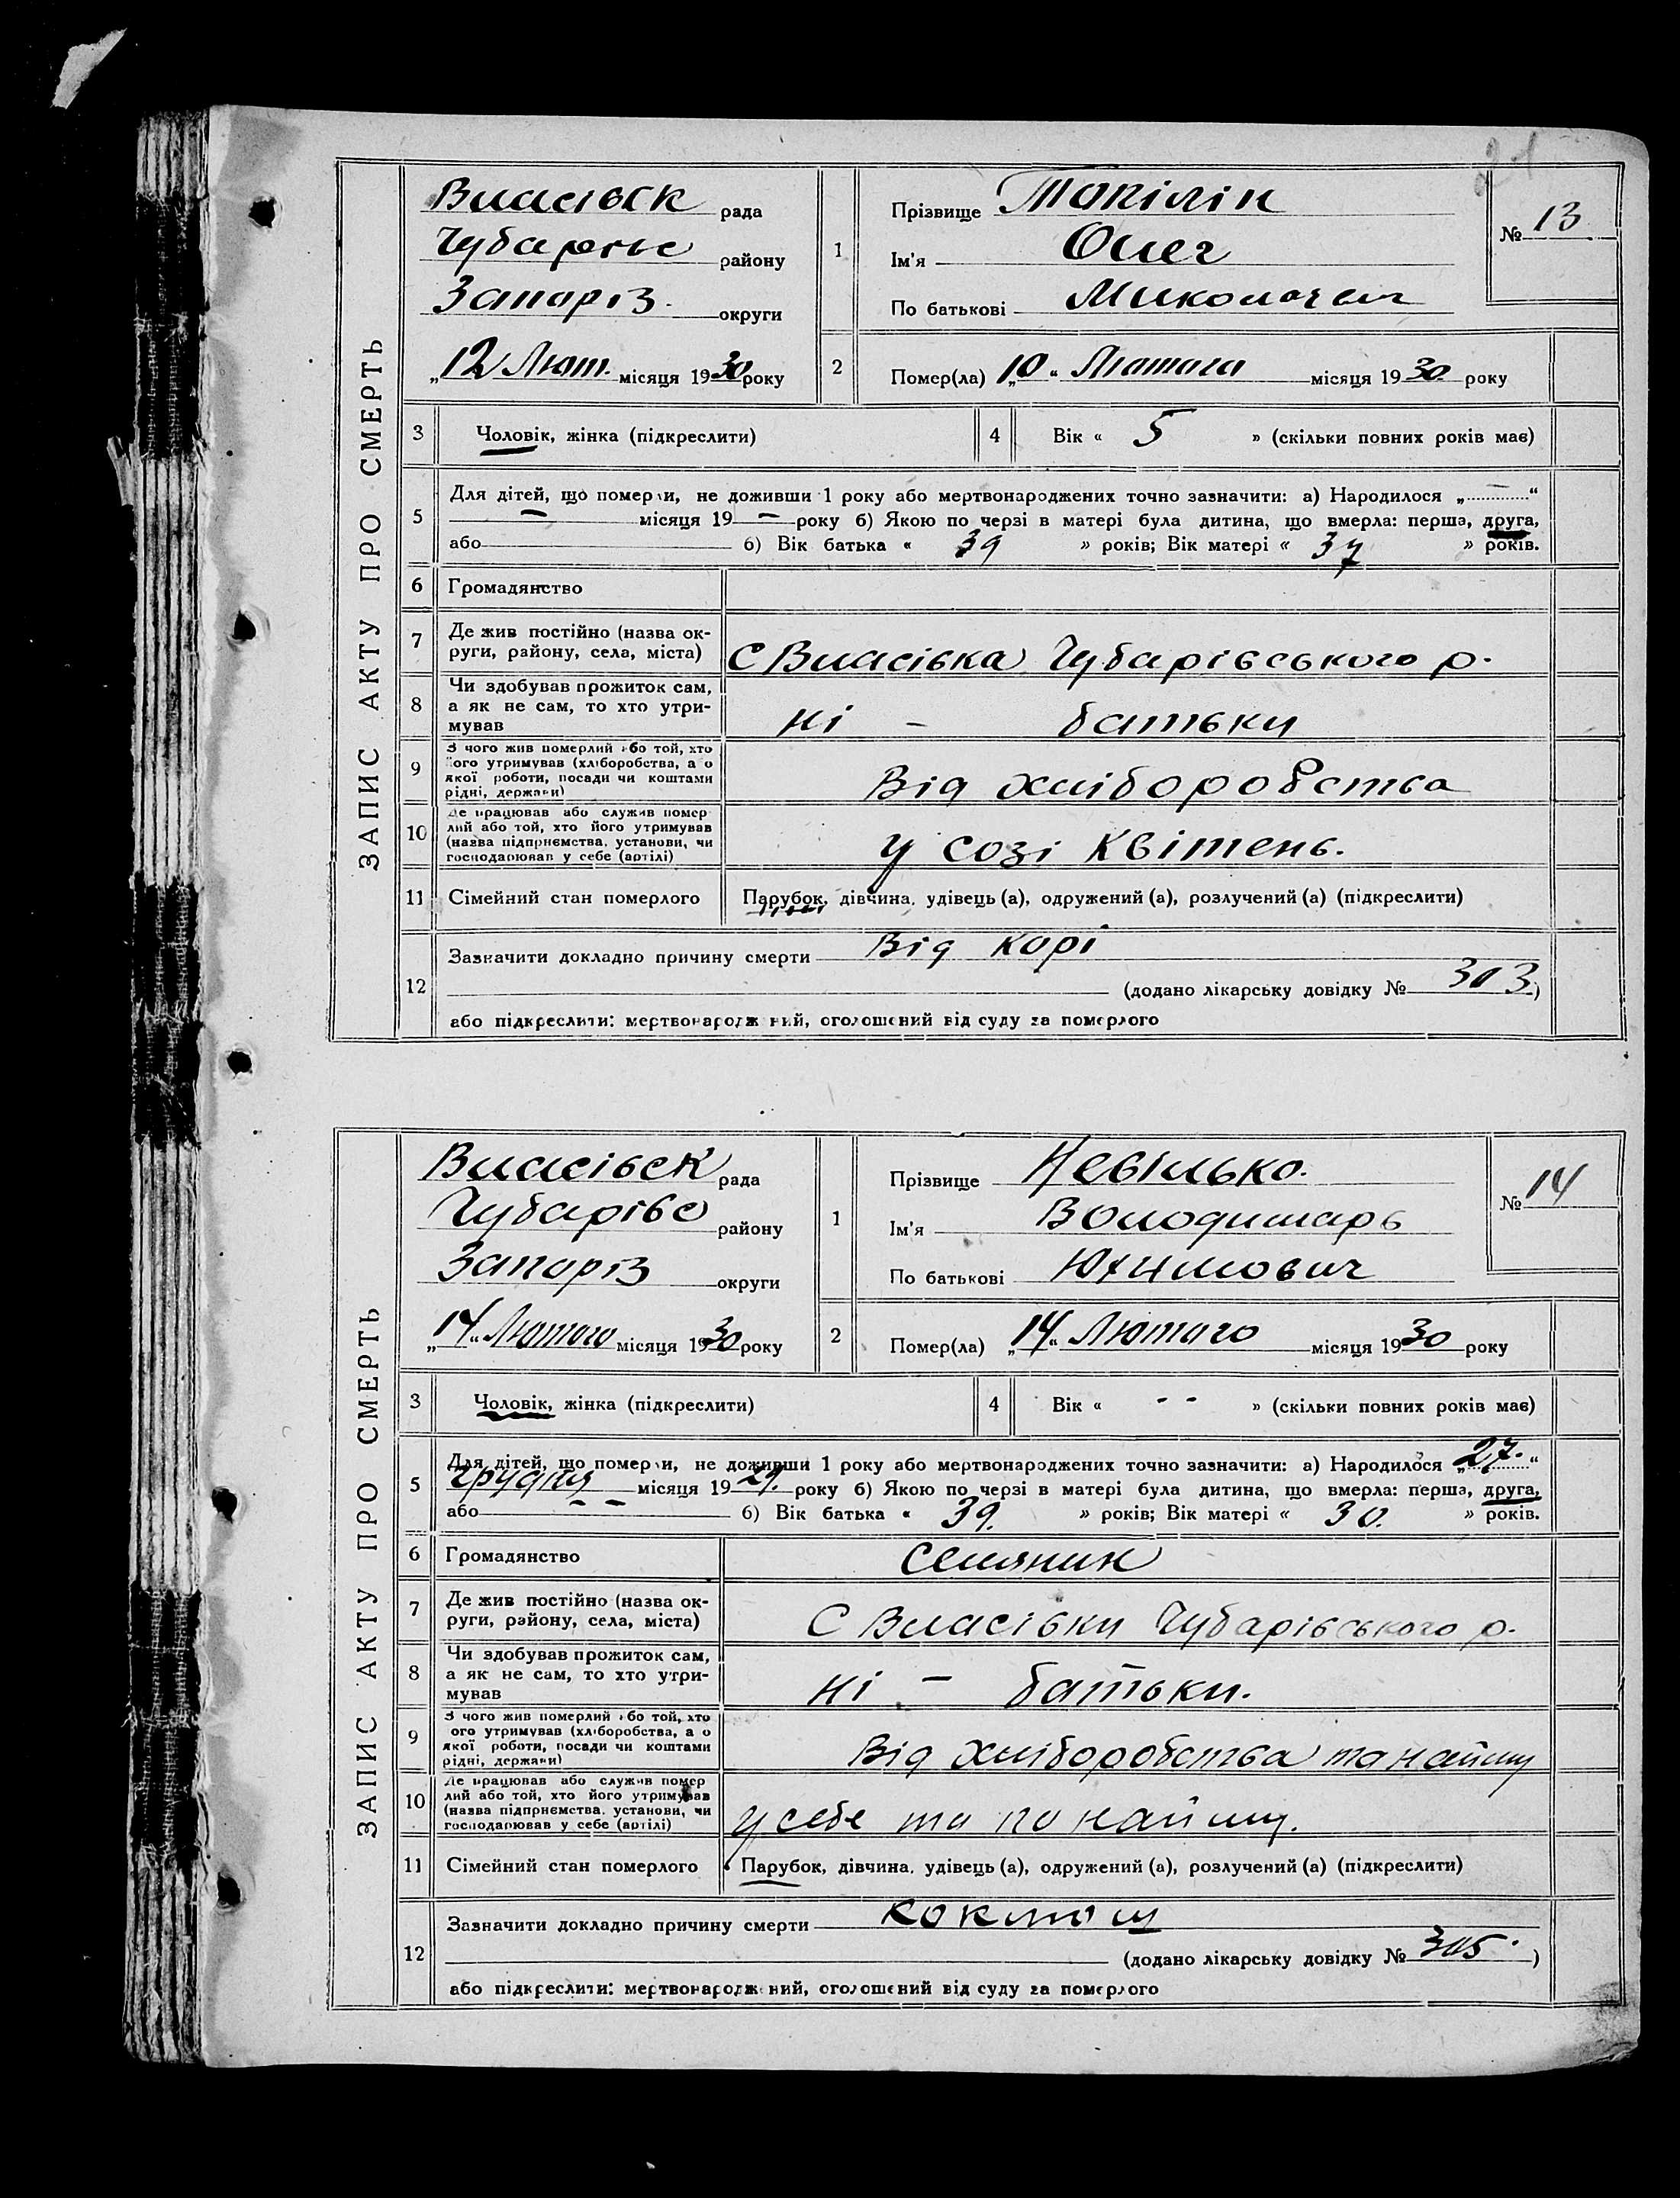 21
ЗАПИС АКТУ ПРО СМЕРТЬ
Власівск рада
Чубарівс району
Запоріз. округи
„12 Лют. місяця 1930 року
1 Прізвище Топілін
Ім'я Олег
По батькові Миколаєвич
№ 13
2 Помер(ла) „10“ Лютого місяця 1930. року
3 Чоловік, жінка (підкреслити)
4 Вік « 5 » (скільки повних років має)
5 Для дітей, що померли, не доживши 1 року або мертвонароджених точно зазначити: а) Народилося „ — “
— місяця 19 — року б) Якою по черзі в матері була дитина, що вмерла: перша, друга,
або б) Вік батька « 39 » років; Вік матері « 37 » років.
6 Громадянство
7 Де жив постійно (назва ок-
руги, району, села, міста) С Власівка Чубарівського р.
8 Чи здобував прожиток сам,
а як не сам, то хто утри-
мував ні - батьки
9 З чого жив померлий або той, хто
його утримував (хліборобства, а о
якої роботи, посади чи коштами
рідні, держави) Від хліборобства
10 Де працював або служив помер
лий або той, хто його утримував
(назва підприємства, установи, чи
господарював у себе (артілі) у созі Квітень.
11 Сімейний стан померлого Парубок, дівчина, удівець (а), одружений (а), розлучений (а) (підкреслити)
12 Зазначити докладно причину смерти Від корі
(додано лікарську довідку № 303)
або підкреслити: мертвонароджений, оголошений від суду за померлого
ЗАПИС АКТУ ПРО СМЕРТЬ
Власівск рада
Чубарівс району
Запоріз округи
„14“ Лютого місяця 1930 року
1 Прізвище Невілько.
Ім'я Володимарь
По батькові Юхимович
№ 14
2 Помер(ла) „14“ Лютого місяця 1930 року
3 Чоловік, жінка (підкреслити)
4 Вік « - - » (скільки повних років має)
5 Для дітей, що померли, не доживши 1 року або мертвонароджених точно зазначити: а) Народилося „27.“
грудня місяця 1929. року б) Якою по черзі в матері була дитина, що вмерла: перша, друга,
або - - б) Вік батька « 39. » років; Вік матері « 30. » років.
6 Громадянство Селяник
7 Де жив постійно (назва ок-
руги, району, села, міста) С Власівки Чубарівського р.
8 Чи здобував прожиток сам,
а як не сам, то хто утри-
мував ні - батьки.
9 З чого жив померлий або той, хто
ого утримував (хліборобства, а о
якої роботи, посади чи коштами
рідні, держави) Від хліборобства та найму
10 Де працював або служив помер
лий або той, хто його утримував
(назва підприємства, установи, чи
господарював у себе (артілі) у себе та по найму.
11 Сімейний стан померлого Парубок, дівчина, удівець (а), одружений (а), розлучений (а) (підкреслити)
12 Зазначити докладно причину смерти коклюш
(додано лікарську довідку № 305.)
або підкреслити: мертвонароджений, оголошений від суду за померлого